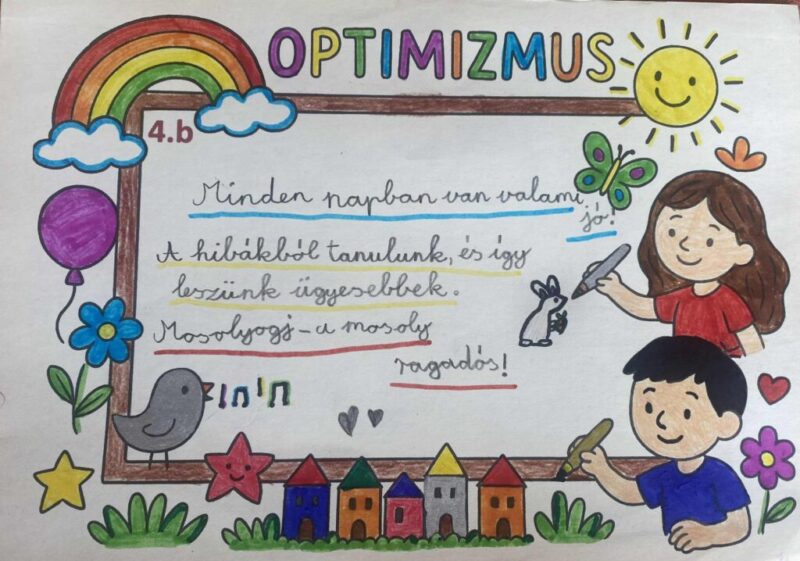 OPTIMIZMUS
4.b
Minden napban van valami
jó!
A hibákból tanulunk, és így
leszünk ügyesebbek.
Mosolyogj – a mosoly
ragadós!